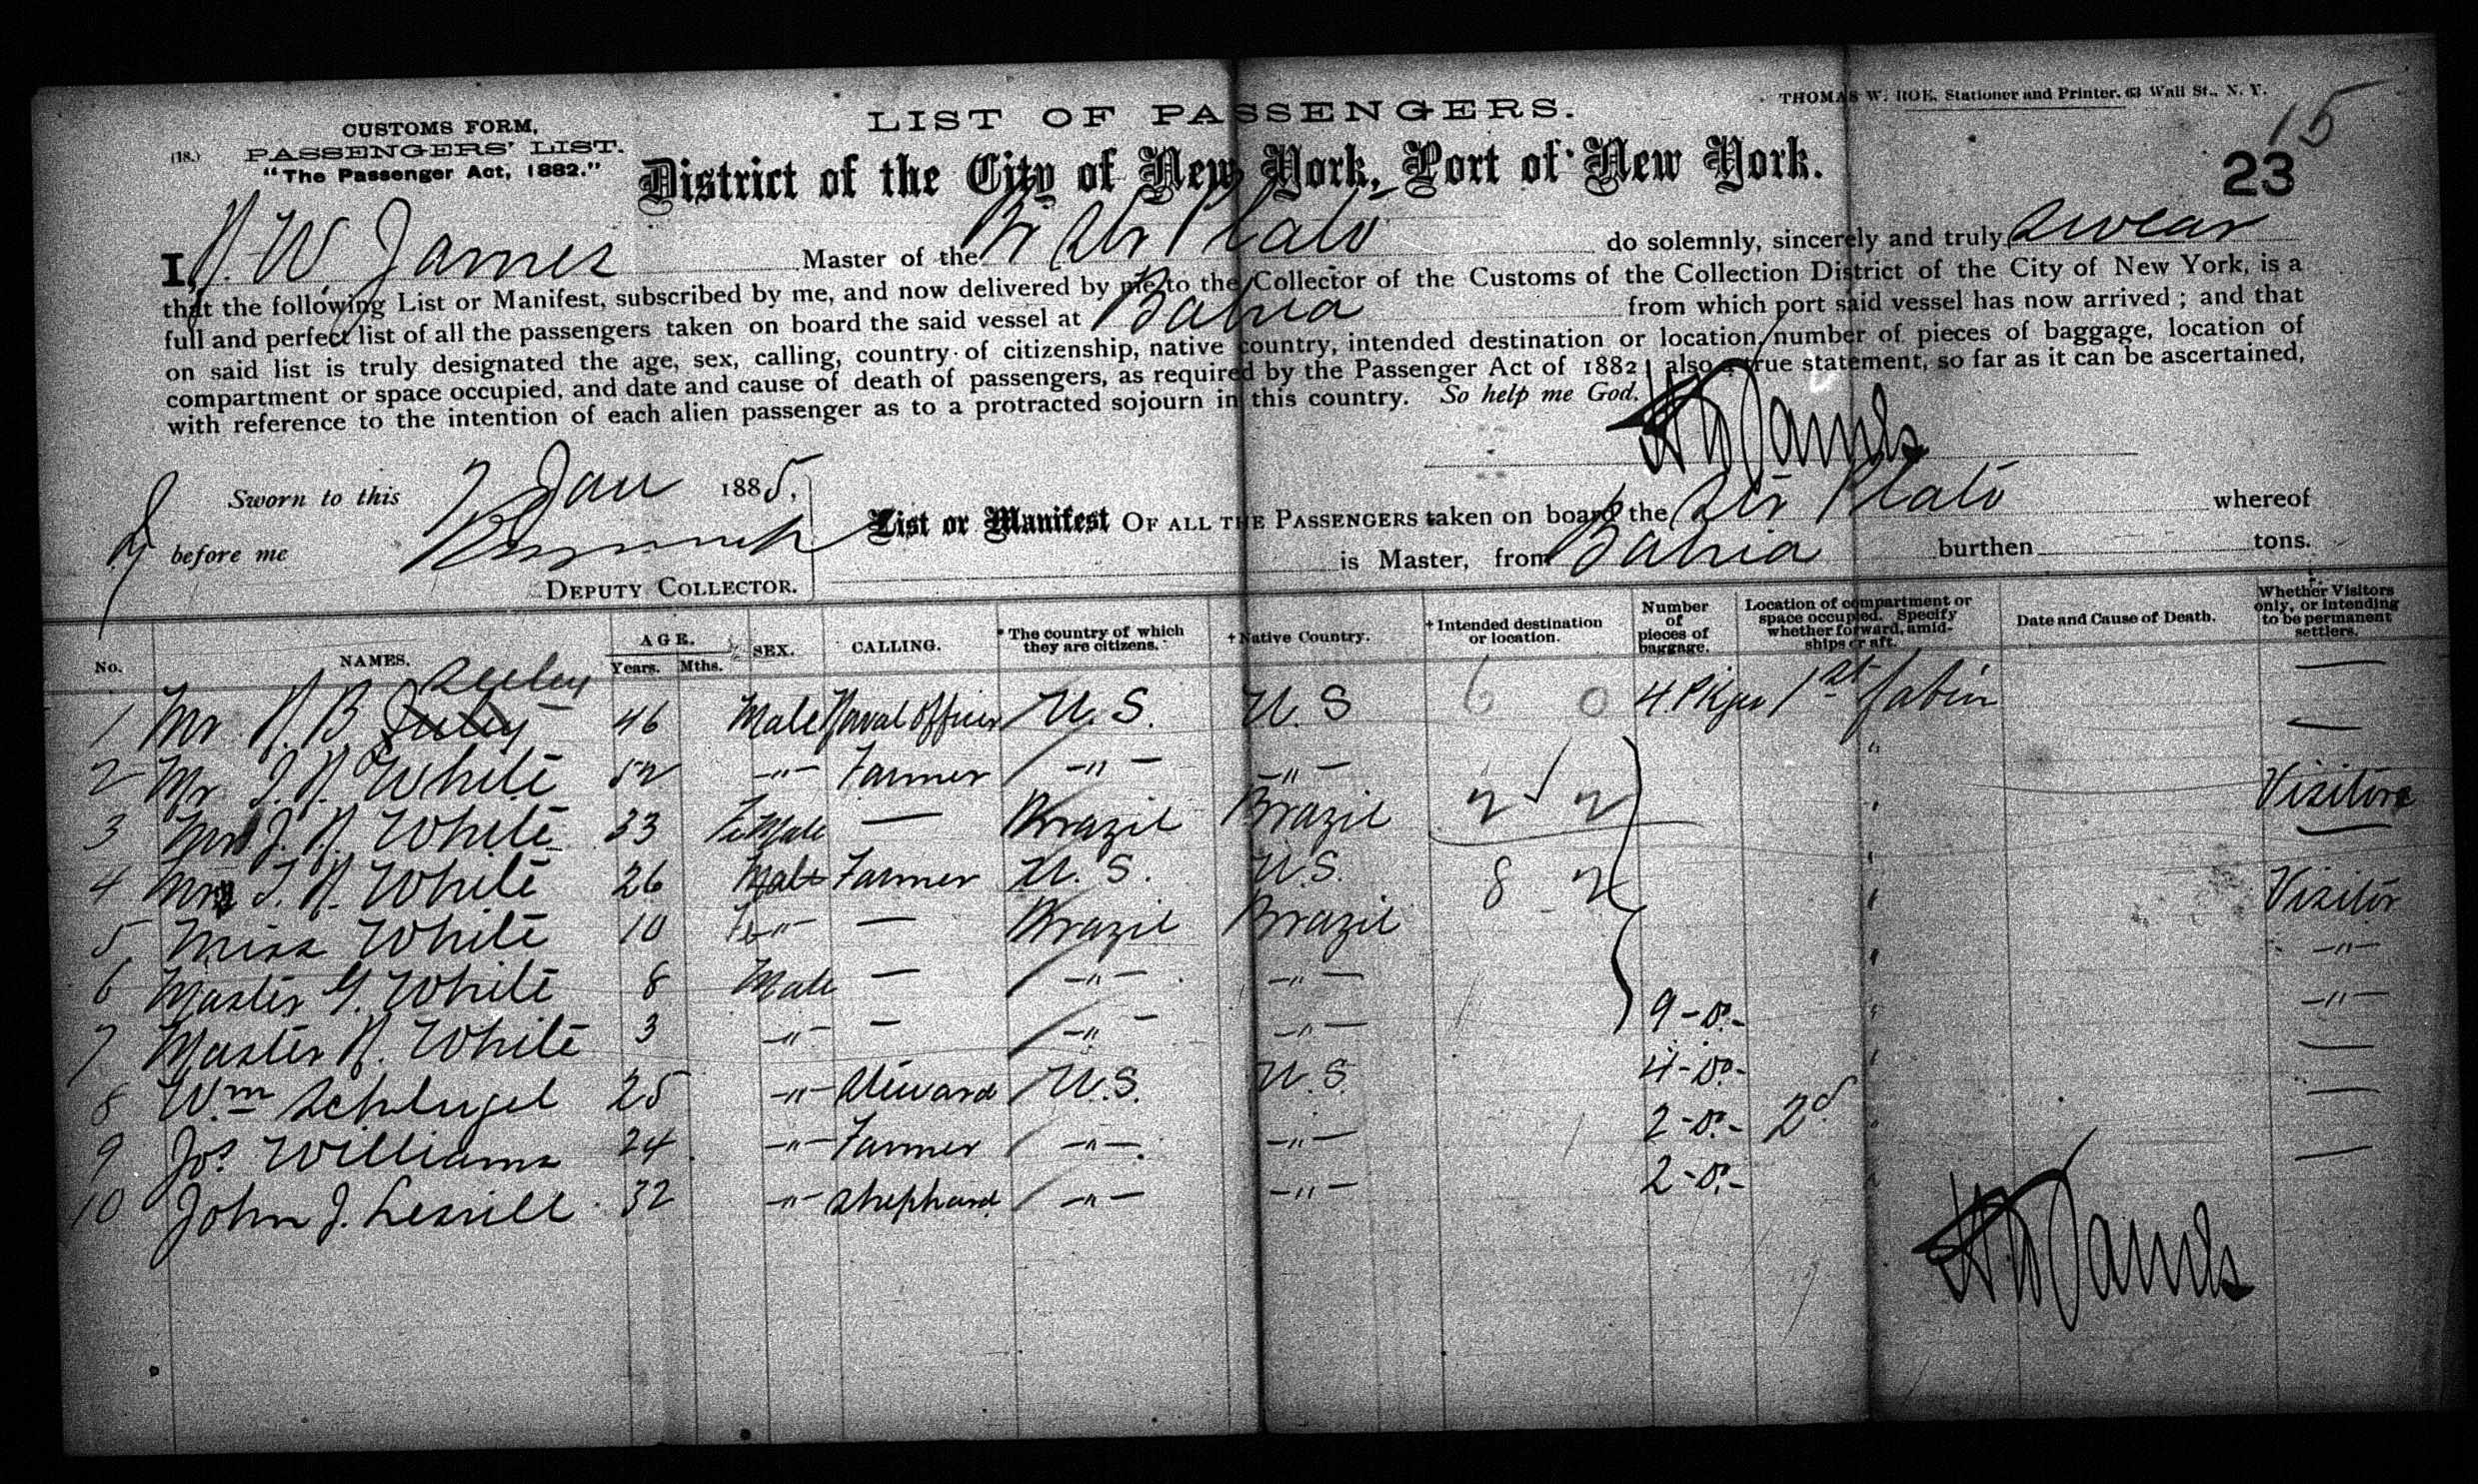 LIST OF PASSENGERS.
THOMAS W. ROE, Stationer and Printer, 63 Wall St., N. Y.
15
(18.)
CUSTOMS FORM,
PASSENGERS' LIST.
"The Passenger Act, 1882."
District of the City of New York, Port of New York.
23
I, H. W. James Master of the Br Str Plato do solemnly, sincerely and truly swear
that the following List or Manifest, subscribed by me, and now delivered by me to the Collector of the Customs of the Collection District of the City of New York, is a
full and perfect list of all the passengers taken on board the said vessel at Bahia from which port said vessel has now arrived; and that
on said list is truly designated the age, sex, calling, country of citizenship, native country, intended destination or location, number of pieces of baggage, location of
compartment or space occupied, and date and cause of death of passengers, as required by the Passenger Act of 1882; also a true statement, so far as it can be ascertained,
with reference to the intention of each alien passenger as to a protracted sojourn in this country. So help me God.
H W James
Sworn to this 7 Jan 1885,
before me
DEPUTY COLLECTOR.
List or Manifest OF ALL THE PASSENGERS taken on board the Str Plato whereof
is Master, from Bahia burthen tons.
No. NAMES. AGE. Years. Mths. SEX. CALLING. * The country of which they are citizens. † Native Country. † Intended destination or location. Number of pieces of baggage. Location of compartment or space occupied. Specify whether forward, amidships or aft. Date and Cause of Death. Whether Visitors only, or intending to be permanent settlers.
Seeley
1 Mr H. B 46 Male Naval Officer U. S. U. S 6 0 4 Pkgs 1st Cabin —
2 Mr J. H. White 52 -"- Farmer -"- -"- " —
3 Mrs J. H. White 33 FeMale — Brazil Brazil 2 2 " Visitors
4 Mr J. H. White 26 Male Farmer U. S. U. S. 8 2 " —
5 Miss White 10 Fe-"- — Brazil Brazil " Visitor
6 Master G. White 8 Male — -"- -"- " -"-
7 Master H. White 3 -"- — -"- -"- 9 -Do- " -"-
8 Wm Schlugel 25 -"- Steward U.S. U. S 4 -Do- " —
9 Jos Williams 24 -"- Farmer -"- -"- 2 -Do- 2d " —
10 John J. 32 -"- Shephard -"- -"- 2 -Do- " —
H W James